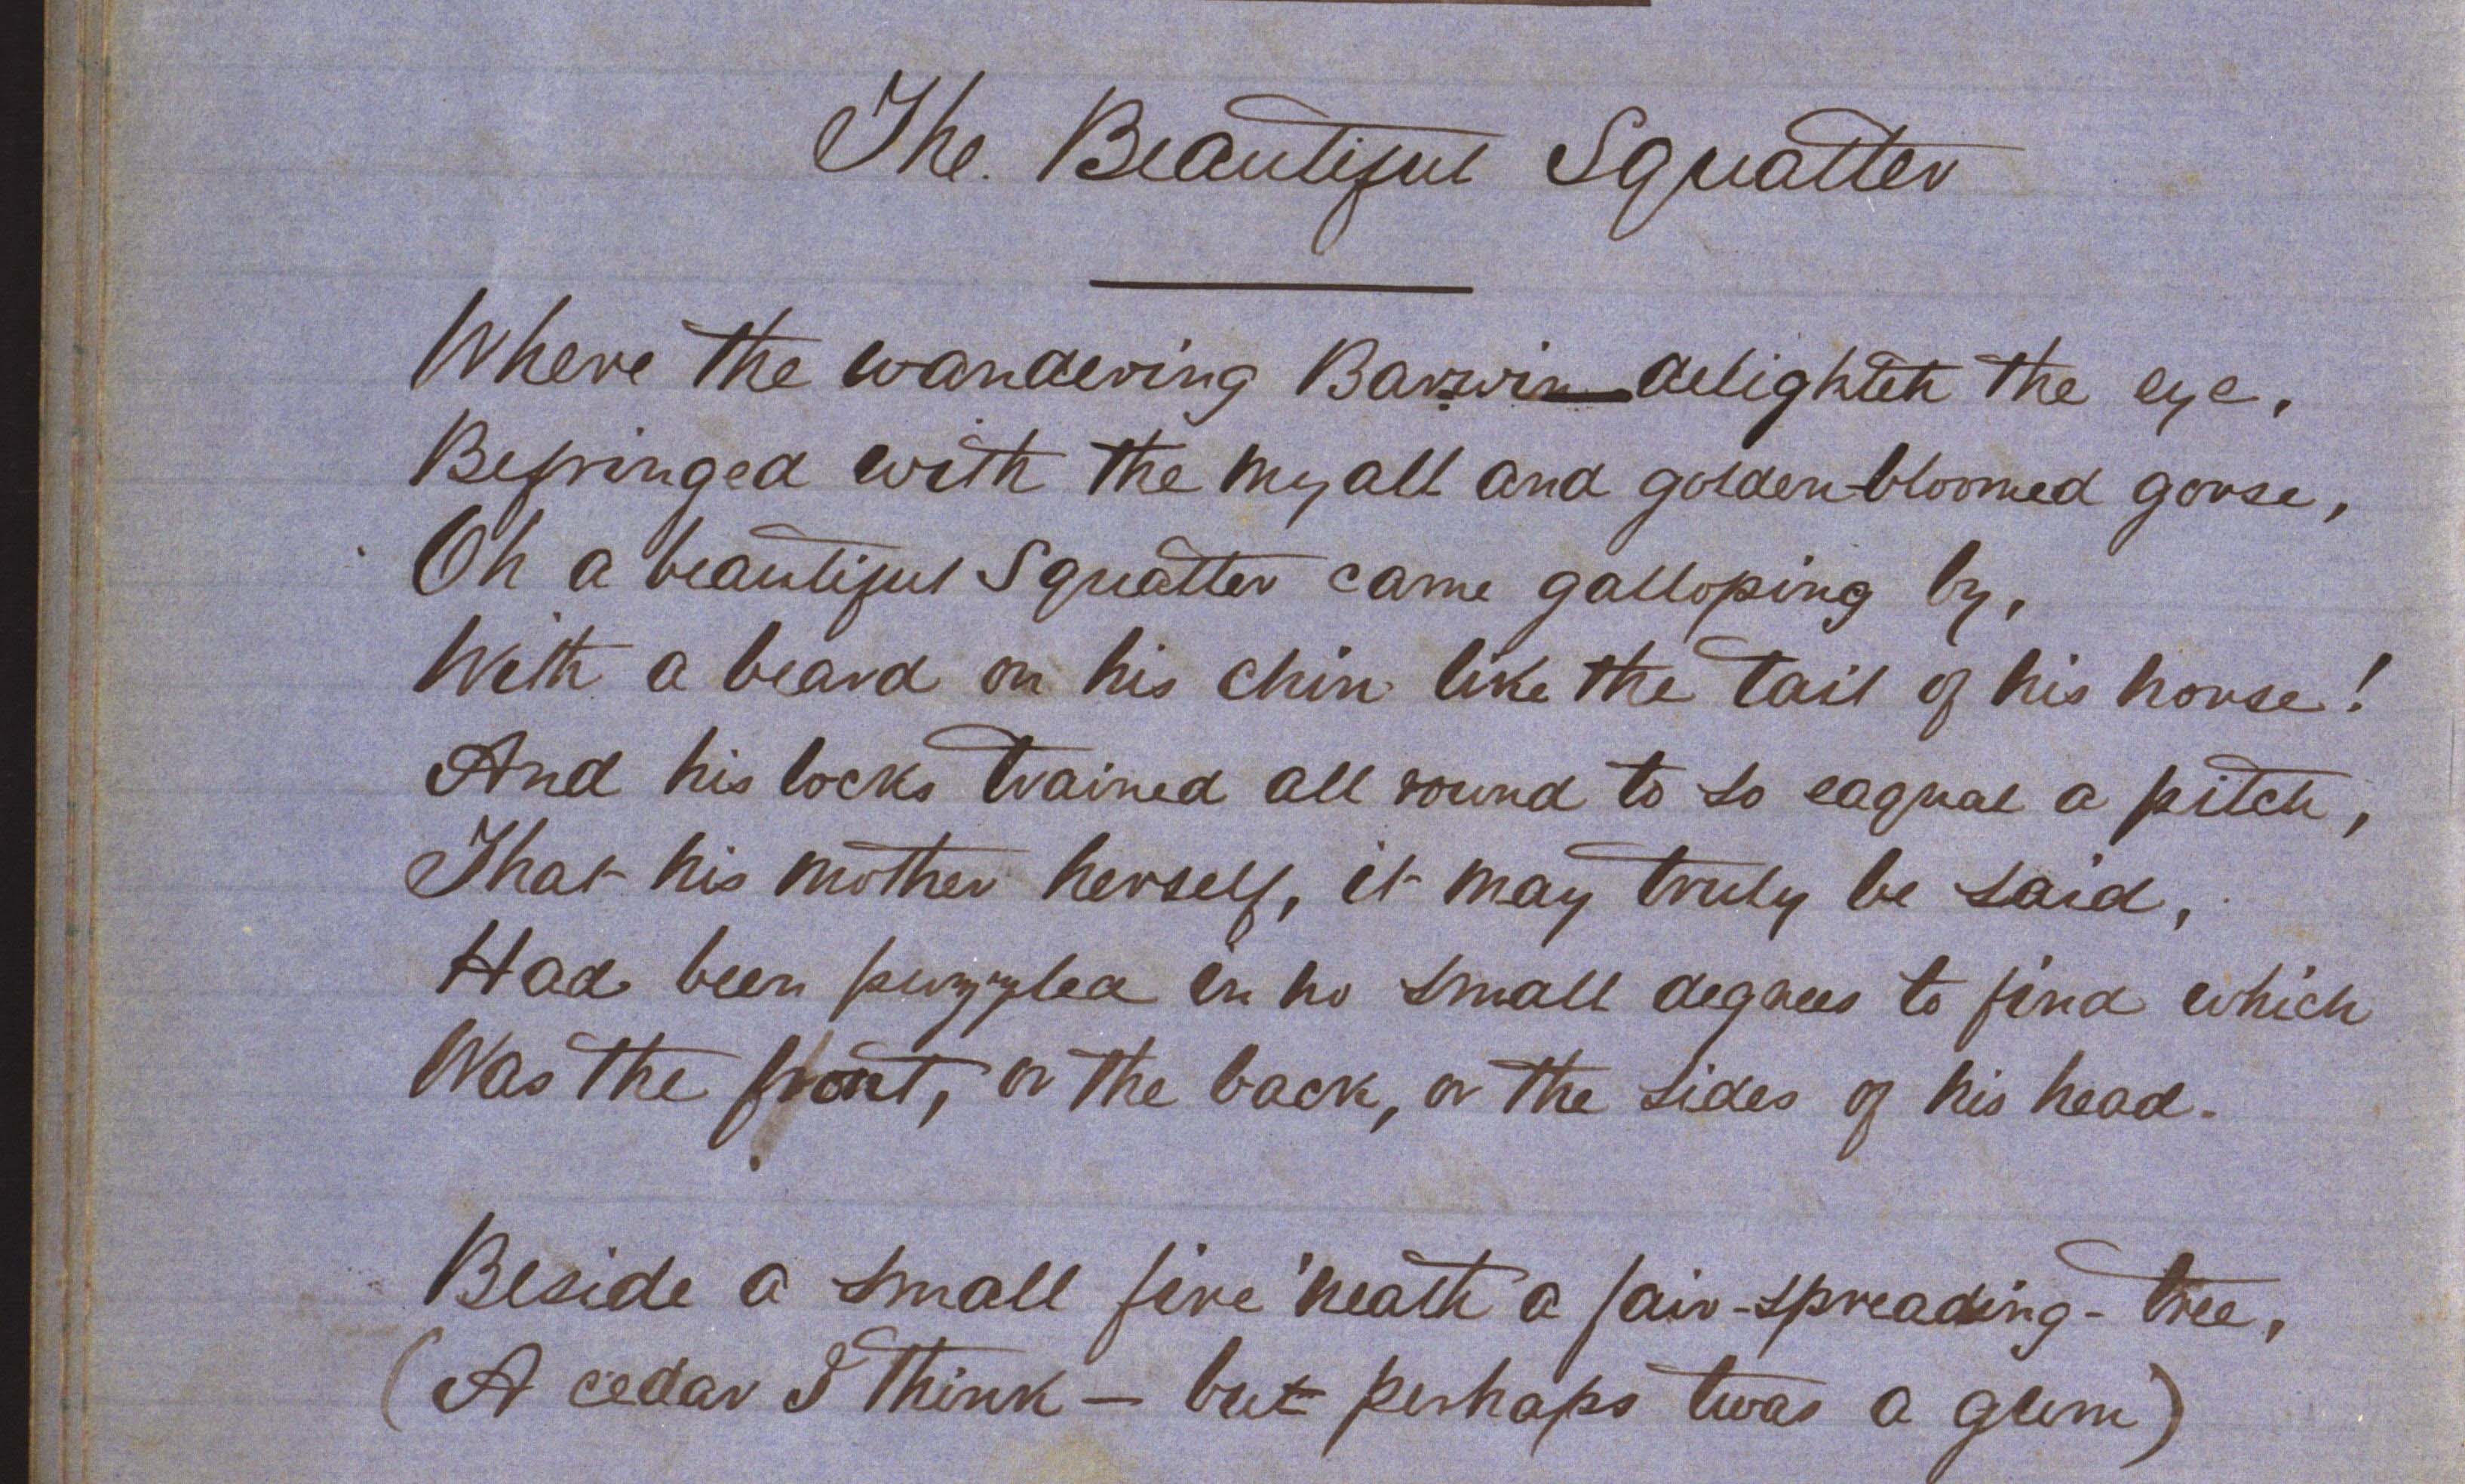 The Beautiful Squatter
Where the wandering Barwin delighteth the eye,
Befringed with the myall and golden-bloomed gorse,
Oh a beautiful Squatter came galloping by,
With a beard on his chin like the tail of his horse!
And his locks trained all round to so eaqual a pitch,
That his mother herself, it may truly be said,
Had been puzzled in no small degrees to find which
Was the front, or the back, or the sides of his head.
Beside a small fire 'neath a fair-spreading-tree,
(A cedar I think — but perhaps twas a gum)